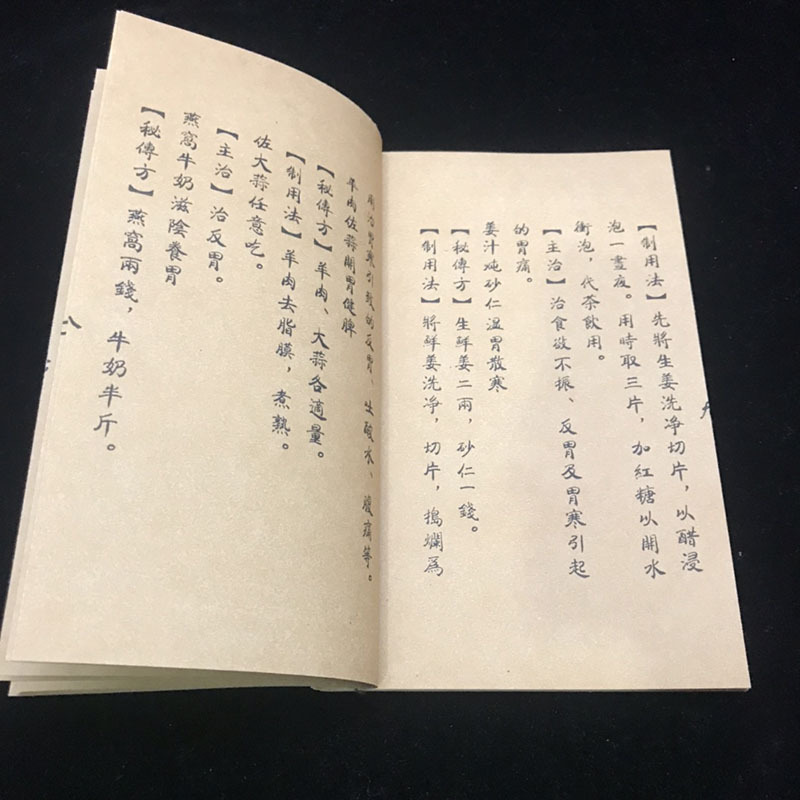 【制用法】先將生姜洗净切片，以醋浸
泡一晝夜。用時取三片，加紅糖以開水
衝泡，代茶飲用。
【主治】治食欲不振、反胃及胃寒引起
的胃痛。
姜汁炖砂仁温胃散寒
【秘傳方】生鮮姜二兩，砂仁一錢。
【制用法】將鮮姜洗净，切片，搗爛爲
用治胃寒引致的反胃、吐酸水、腹痛等。
羊肉佐蒜開胃健脾
【秘傳方】羊肉、大蒜各適量。
【制用法】羊肉去脂膜，煮熟。
佐大蒜任意吃。
【主治】治反胃。
燕窩牛奶滋陰養胃
【秘傳方】燕窩兩錢，牛奶半斤。
八